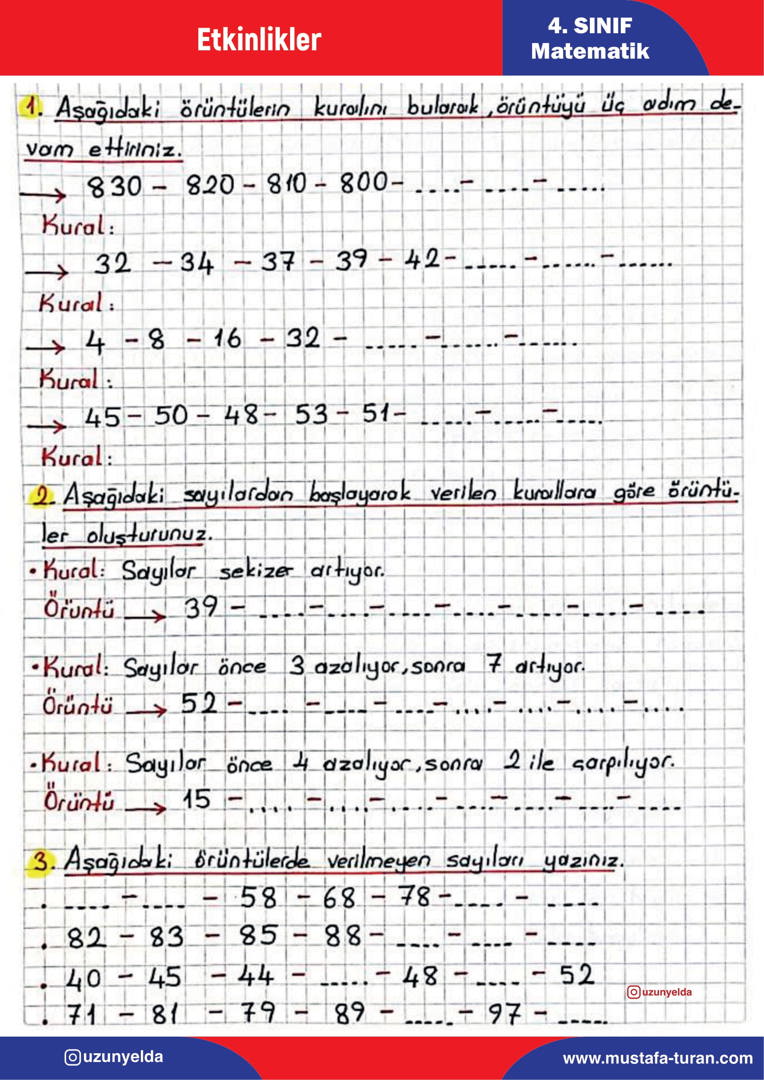 Etkinlikler
4. SINIF
Matematik
1. Aşağıdaki örüntülerin kuralını bularak, örüntüyü üç adım de-
vam ettiriniz.
→ 830 - 820 - 810 - 800- .... - .... - .....
Kural:
→ 32 - 34 - 37 - 39 - 42- ..... - ...... - ......
Kural:
→ 4 - 8 - 16 - 32 - ..... - ...... - ......
Kural:
→ 45 - 50 - 48 - 53 - 51- ..... - ..... - .....
Kural:
2. Aşağıdaki sayılardan başlayarak verilen kurallara göre örüntü-
ler oluşturunuz.
• Kural: Sayılar sekizer artıyor.
Örüntü → 39 - .... - .... - .... - .... - .... - .... - ....
• Kural: Sayılar önce 3 azalıyor, sonra 7 artıyor.
Örüntü → 52 - .... - .... - .... - .... - .... - .... - ....
• Kural: Sayılar önce 4 azalıyor, sonra 2 ile çarpılıyor.
Örüntü → 15 - .... - .... - .... - .... - .... - .... - ....
3. Aşağıdaki örüntülerde verilmeyen sayıları yazınız.
• .... - .... - 58 - 68 - 78 - .... - ....
• 82 - 83 - 85 - 88 - .... - .... - ....
• 40 - 45 - 44 - ..... - 48 - .... - 52
uzunyelda
• 71 - 81 - 79 - 89 - ..... - 97 - .....
uzunyelda
www.mustafa-turan.com